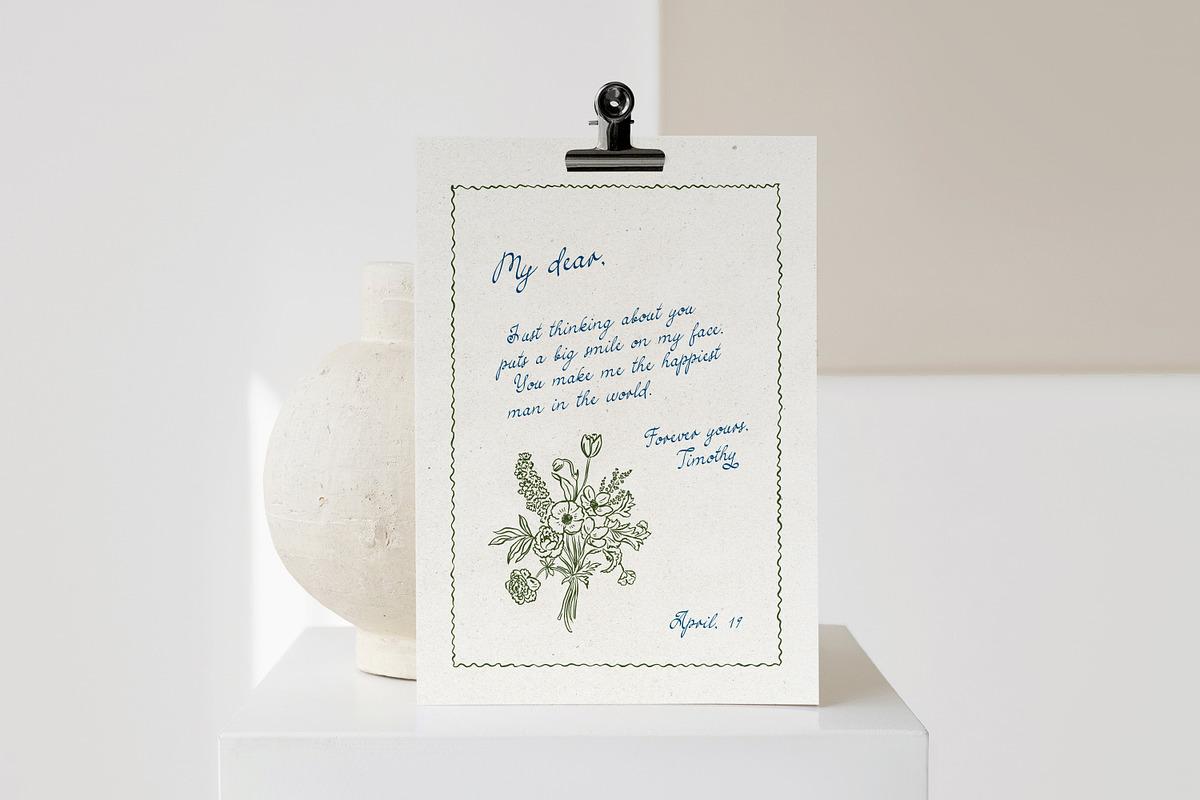 My dear,
Just thinking about you
puts a big smile on my face.
You make me the happiest
man in the world.
Forever yours,
Timothy
April, 19